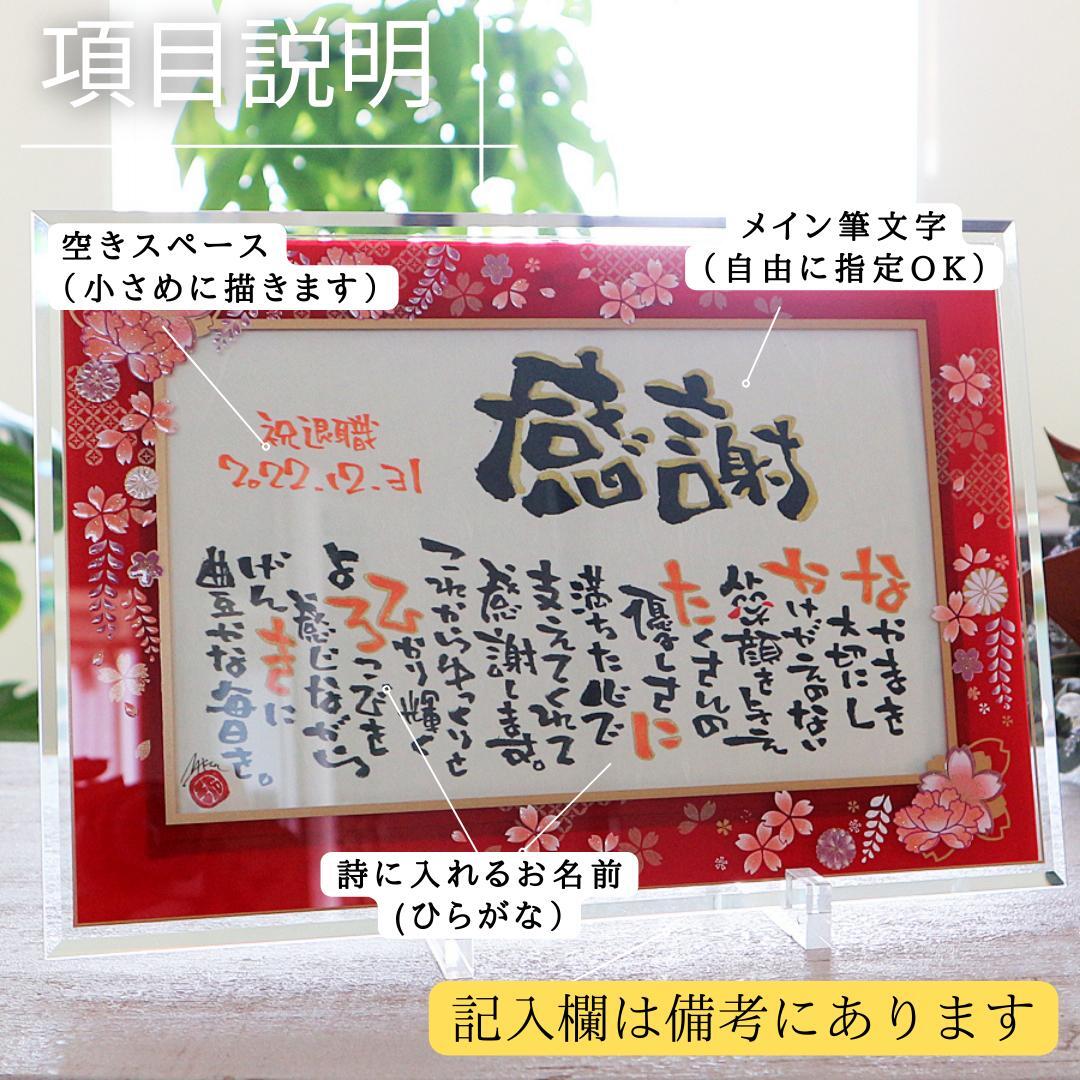 項目説明
空きスペース
(小さめに描きます)
メイン筆文字
(自由に指定OK)
感謝
祝退職
2022.12.31
なかまを
大切にし
かけがえのない
笑顔をささえ
たくさんの
優しさに
満ちた心で
支えてくれて
感謝します。
これからゆっくりと
ひかり輝く
よろこびを
感じながら
げんきに
豊かな毎日を。
詩に入れるお名前
(ひらがな)
記入欄は備考にあります